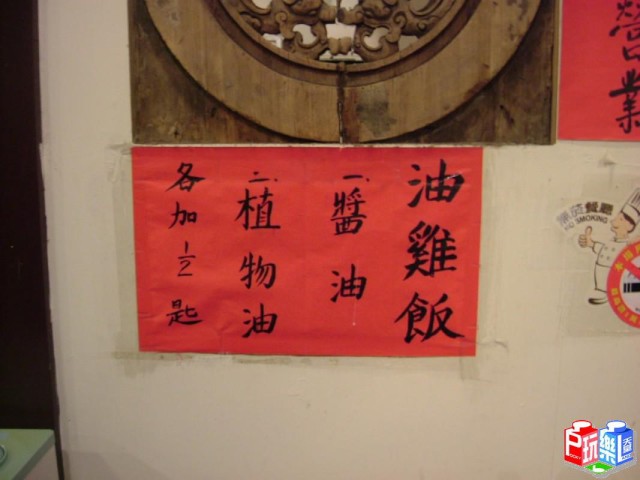 油雞飯
一、醬油
二、植物油
各加½匙
營業
無菸餐廳
NO SMOKING
玩樂